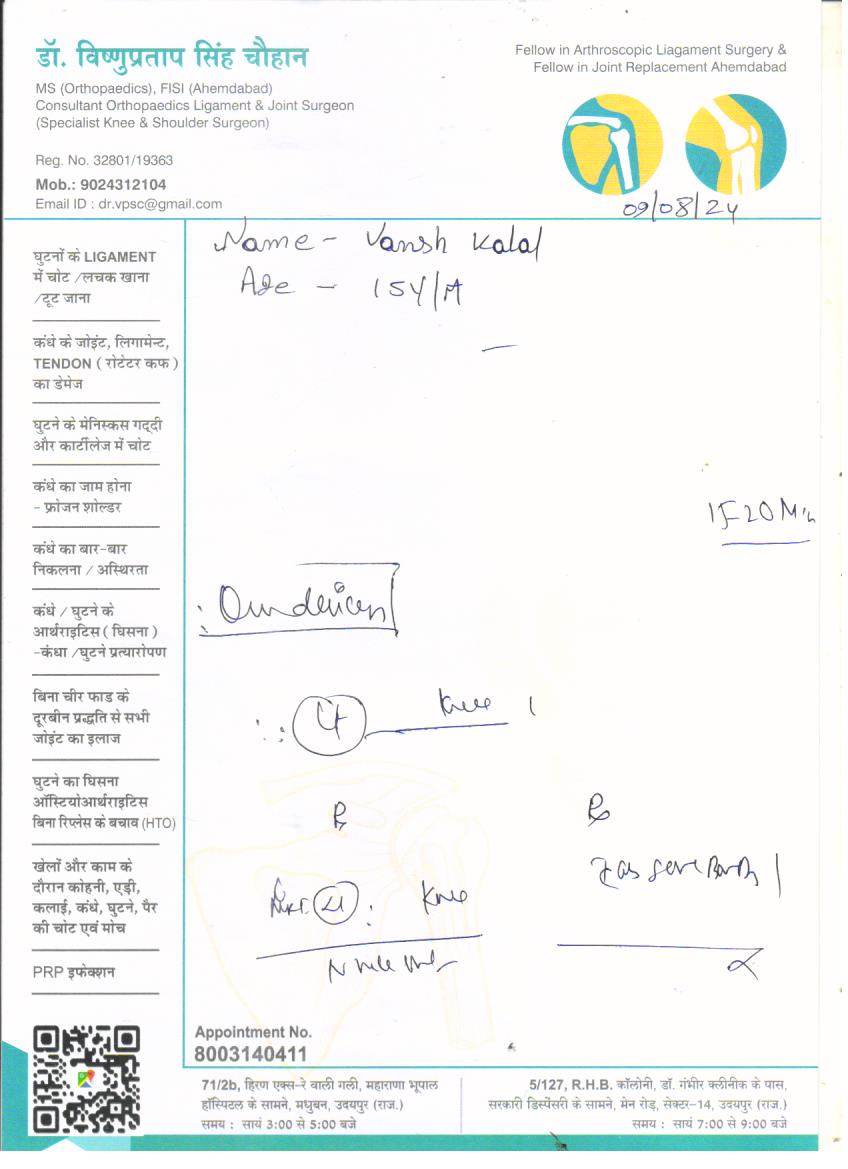 डॉ. विष्णुप्रताप सिंह चौहान
MS (Orthopaedics), FISI (Ahemdabad)
Consultant Orthopaedics Ligament & Joint Surgeon
(Specialist Knee & Shoulder Surgeon)
Reg. No. 32801/19363
Mob.: 9024312104
Email ID : dr.vpsc@gmail.com
Fellow in Arthroscopic Liagament Surgery &
Fellow in Joint Replacement Ahemdabad
09/08/24
Name - Vansh Kalal
Age - 15Y/M
घुटनों के LIGAMENT
में चोट /लचक खाना
/टूट जाना
कंधे के जोइंट, लिगामेन्ट,
TENDON ( रोटेटर कफ )
का डेमेज
घुटने के मेनिस्कस गद्दी
और कार्टीलेज में चोट
कंधे का जाम होना
- फ्रोजन शोल्डर
कंधे का बार-बार
निकलना / अस्थिरता
कंधे / घुटने के
आर्थराइटिस ( घिसना )
-कंधा /घुटने प्रत्यारोपण
बिना चीर फाड के
दूरबीन प्रद्धति से सभी
जोइंट का इलाज
घुटने का घिसना
ऑस्टियोआर्थराइटिस
बिना रिप्लेस के बचाव (HTO)
खेलों और काम के
दौरान कोहनी, एड़ी,
कलाई, कंधे, घुटने, पैर
की चोट एवं मोच
PRP इफेक्शन
20 Min
Knee
Knee
Appointment No.
8003140411
71/2b, हिरण एक्स-रे वाली गली, महाराणा भूपाल
हॉस्पिटल के सामने, मधुबन, उदयपुर (राज.)
समय : सायं 3:00 से 5:00 बजे
5/127, R.H.B. कॉलोनी, डॉ. गंभीर क्लीनीक के पास,
सरकारी डिस्पेंसरी के सामने, मेन रोड़, सेक्टर-14, उदयपुर (राज.)
समय : सायं 7:00 से 9:00 बजे